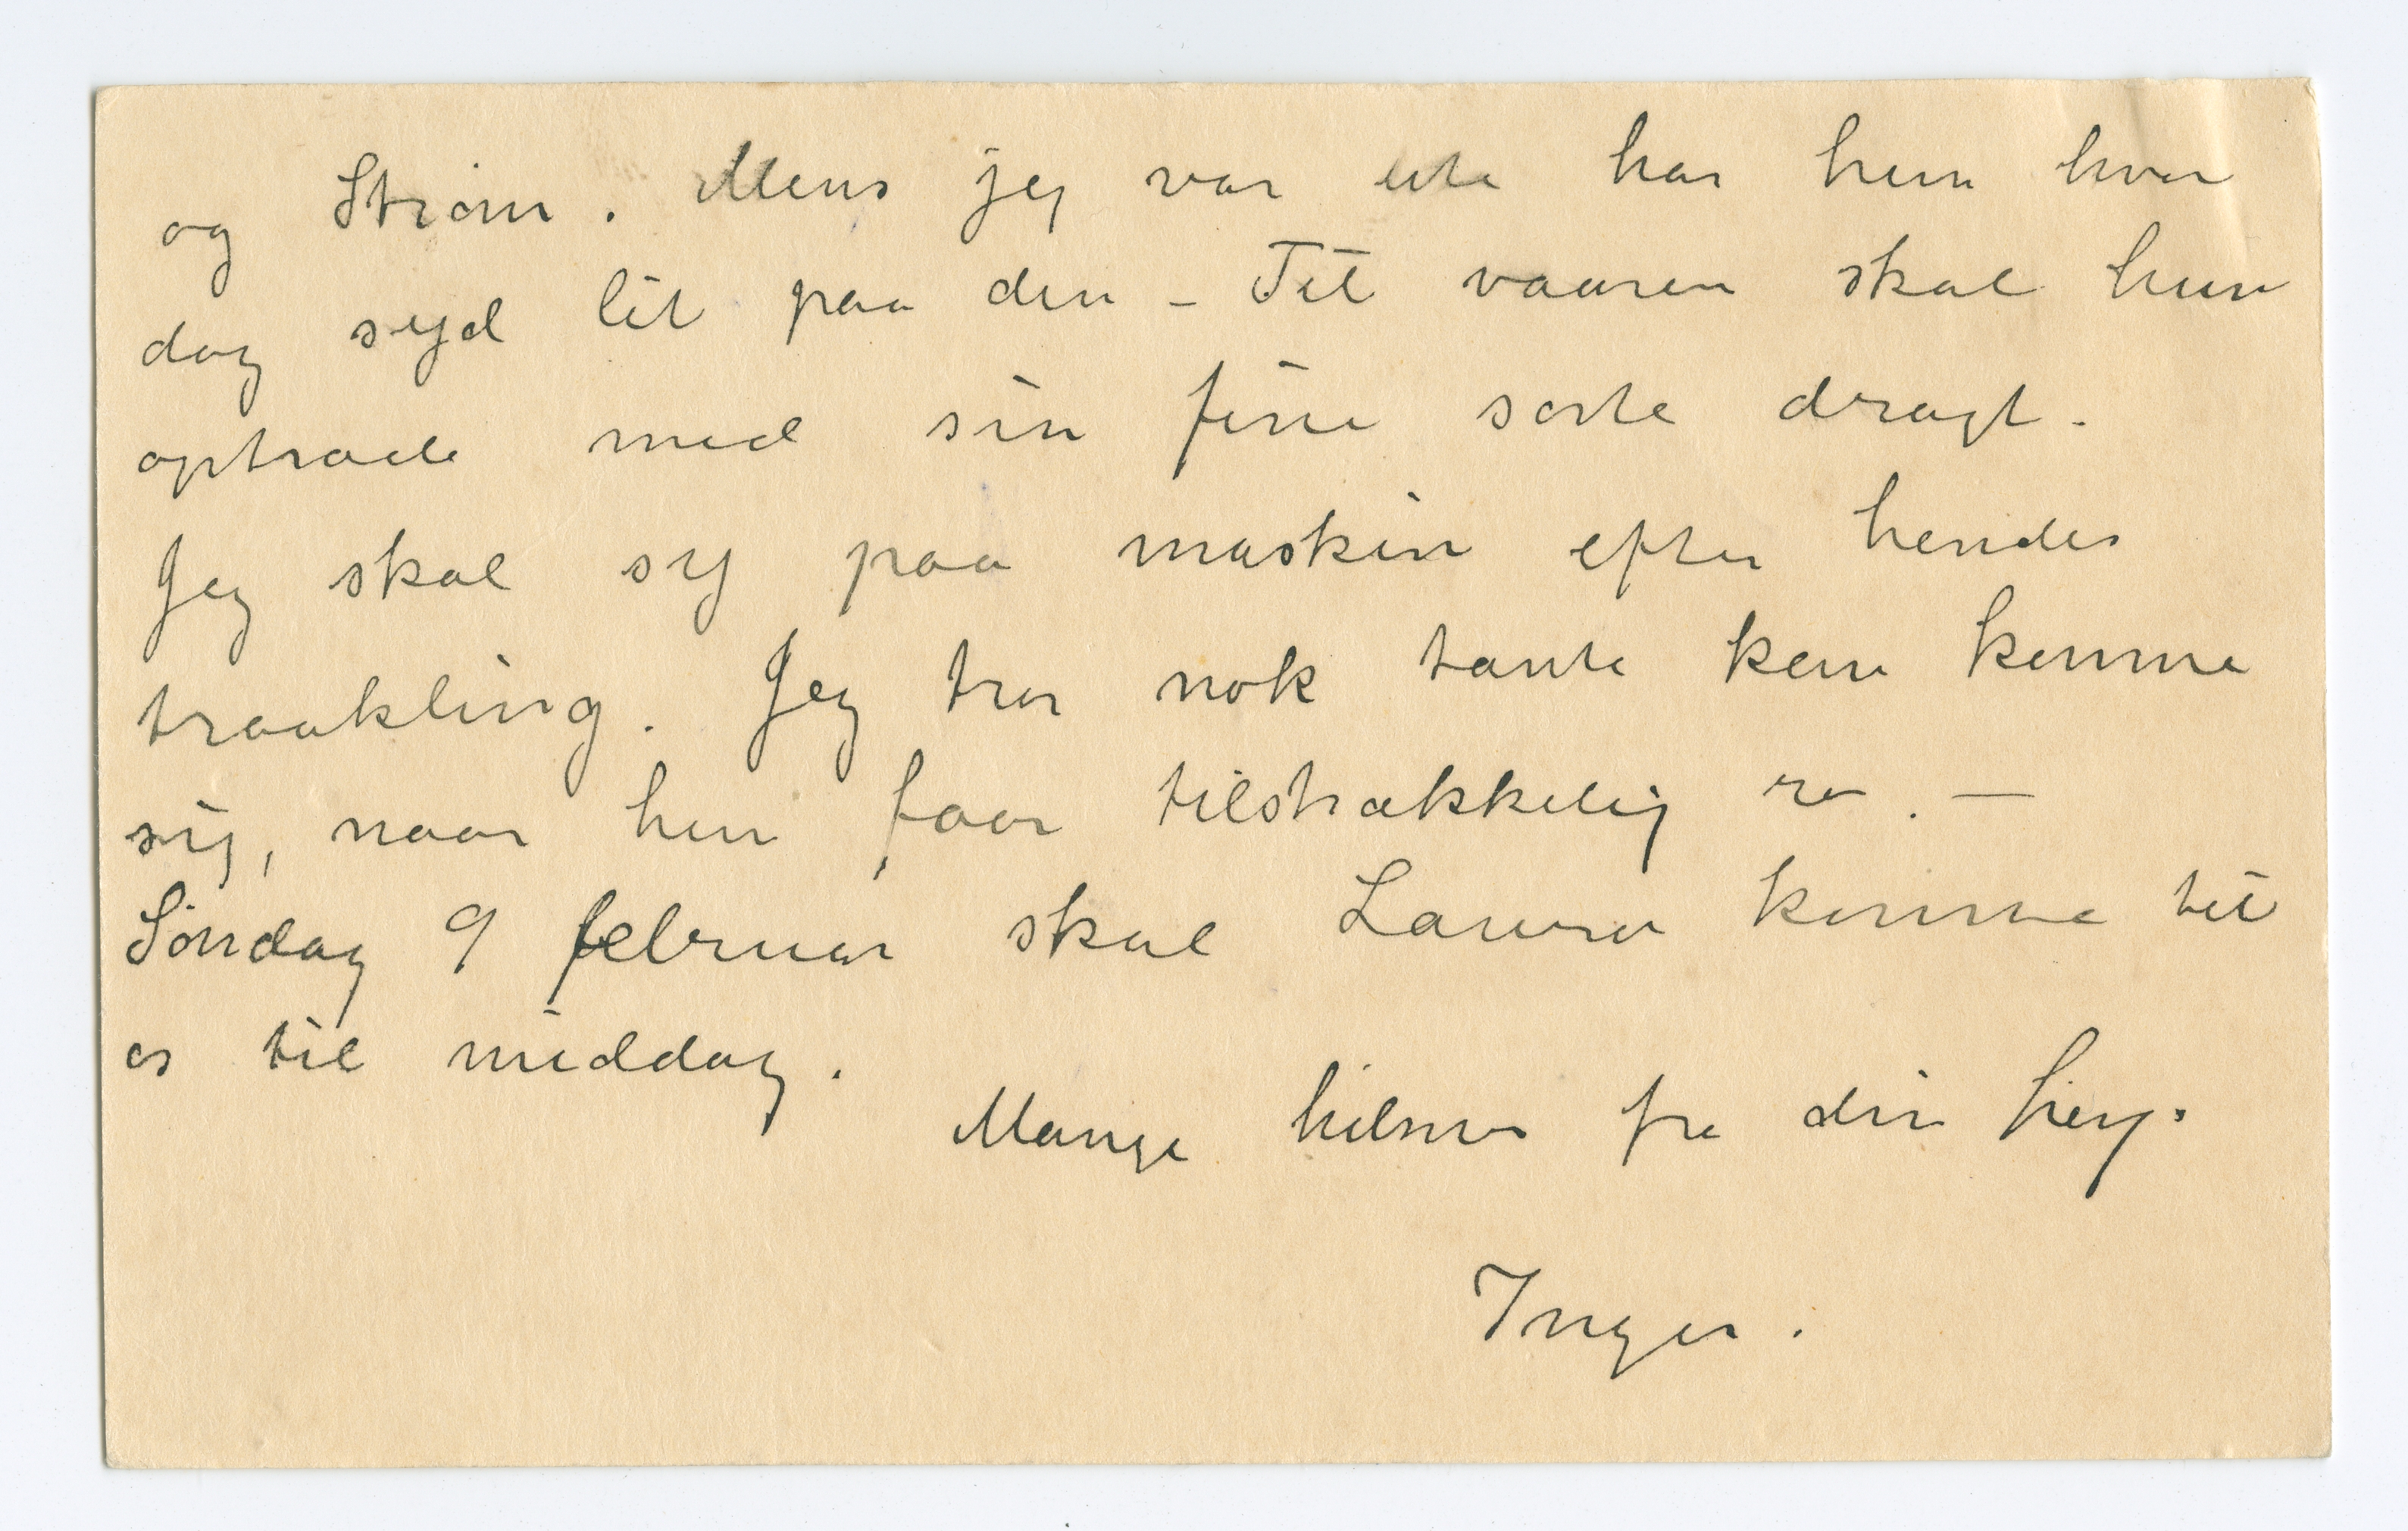 og Strøm. Mens jeg var ute har hun hver
dag syd lit paa den - Til vaaren skal hun
optræde med sin fine sorte dragt.
Jeg skal sy paa maskin efter hendes
traakling. Jeg tror nok tante kan komme
sig, naar hun faar tilstrækkelig ro. —
Søndag 9 februar skal Laura komme til
os til middag.
Mange hilsner fra din heng.
Inger.